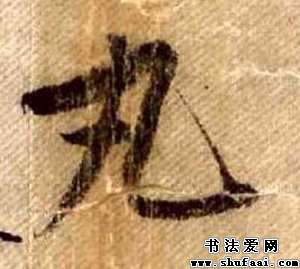 丸
书法爱网
www.shufaai.com